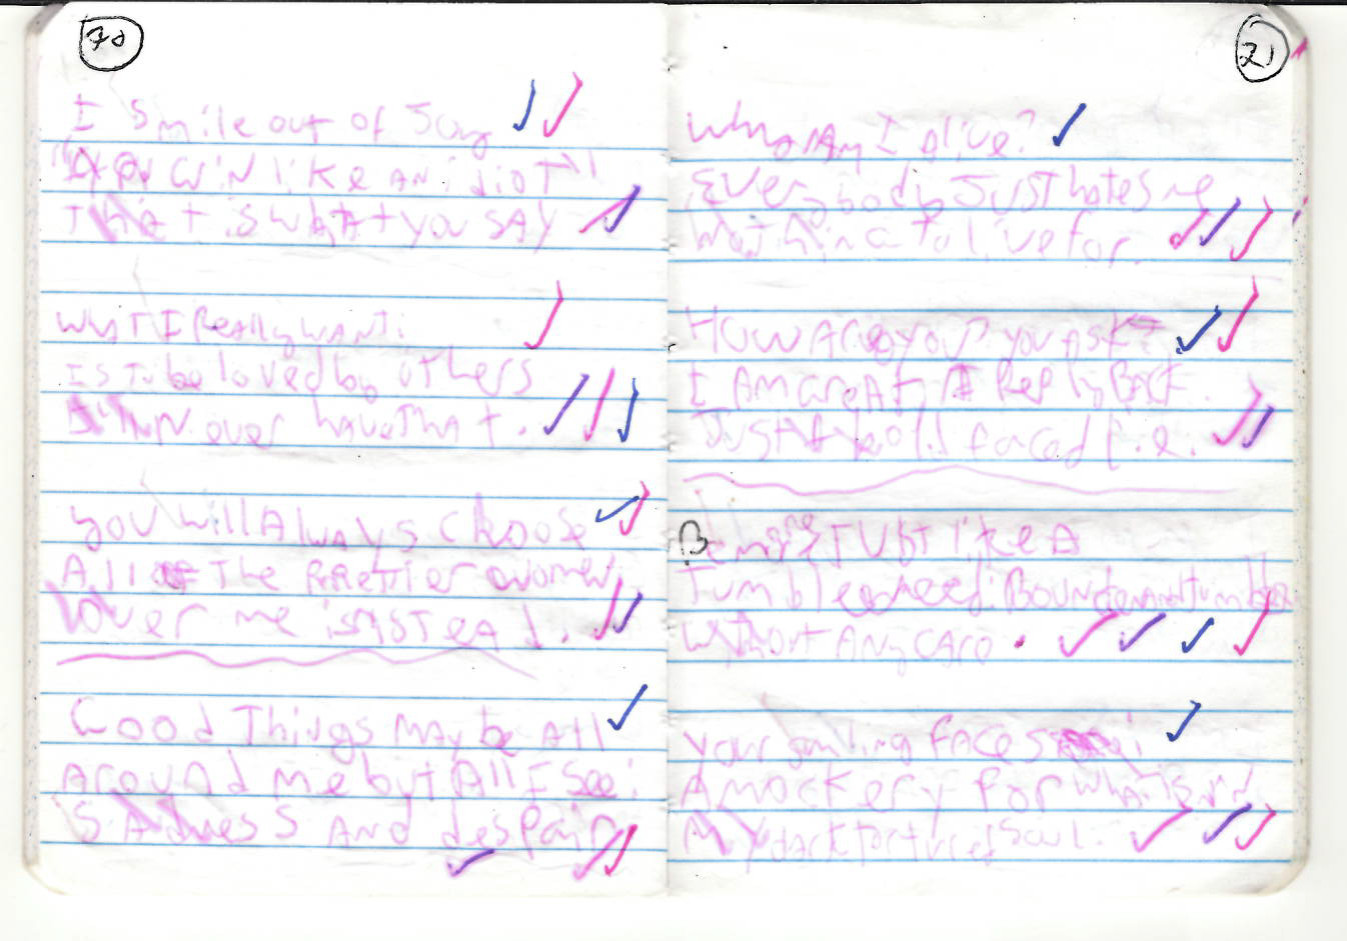 70
I smile out of
Grin like an idiot"
That is what you say
What I Really want:
Is to be loved by others
I'll Never have that.
You will Always choose
All of The Prettier women
over me instead.
Good Things may be All
around me but All I see:
SAdness AND despair
21
Why Am I Alive?
Everybody Just hates me
Nothing to live for.
How Are you? you ask
I Am great, I Reply Back.
Just A bold faced lie.
Being Just like A
Tumbleweed: Bounce and tumble
without Any care.
Your smiling faces
A mockery for what is in
My dark tortured soul.